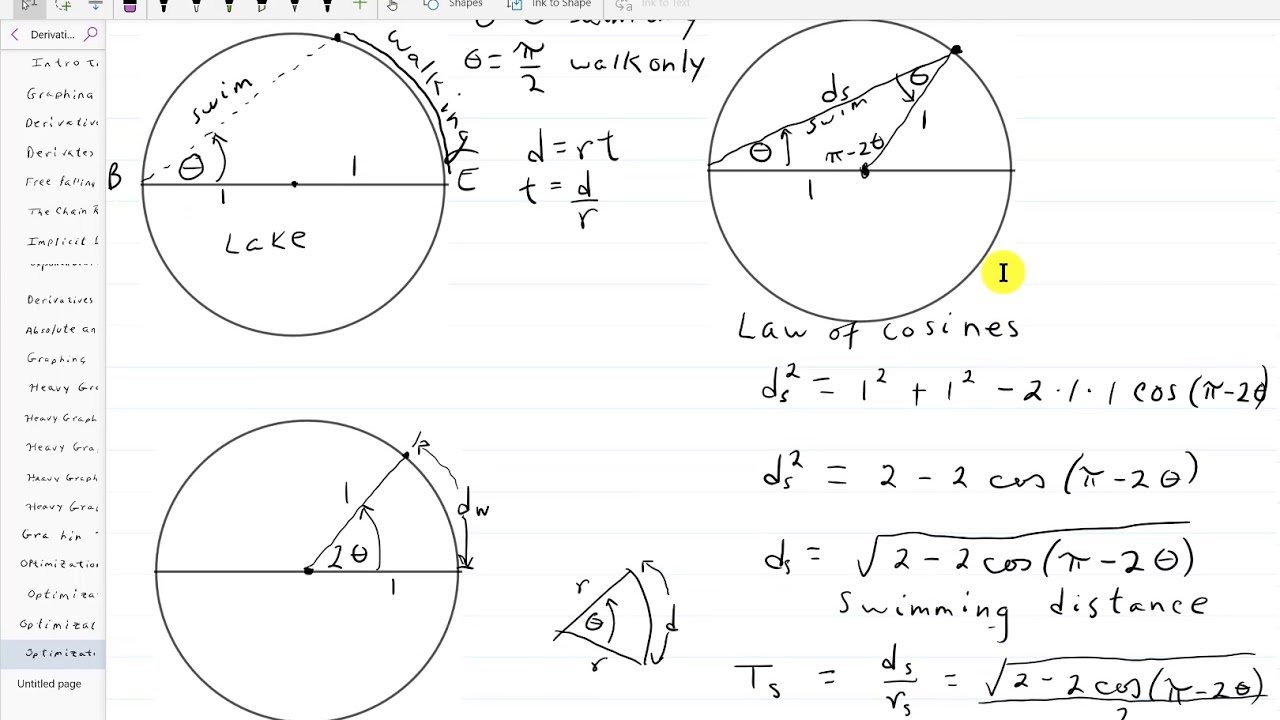 Shapes
Ink to Shape
Ink to Text
Derivati...
Intro
Graphing
Derivative
Derivates
Free falling
The Chain R
Implicit
Derivatives
Absolute an
Graphing
Heavy Gra
Heavy Graph
Heavy Gra
Heavy Graph
Heavy Grac
Gra hin
Optimization
Optimiza
Optimizat
Optimizati
Untitled page
θ = π/2 walk only
swim
walking
B
θ
1
1
E
Lake
d = rt
t = d/r
ds
swim
θ
θ
π-2θ
1
1
Law of cosines
ds² = 1² + 1² - 2·1·1 cos(π-2θ)
ds² = 2 - 2 cos(π-2θ)
ds = √(2 - 2cos(π-2θ))
swimming distance
Ts = ds/rs = √(2 - 2cos(π-2θ))/2
1
2θ
1
dw
r
θ
r
d